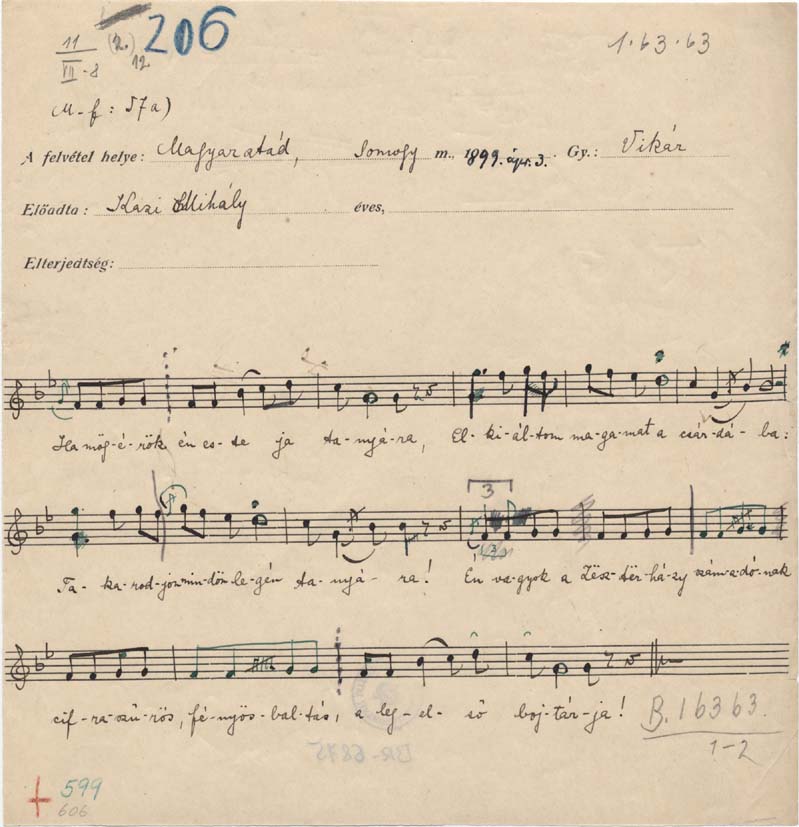 11 (R.) 206 1·63·63
VII-8 12
M-f: 57a)
A felvétel helye: Magyaratád, Somogy m., 1899. ápr. 3. Gy.: Vikár
Előadta: Kazi Mihály éves,
Elterjedtség:
Ha mög-é-rök én es-te ja ta-nyá-ra, El-ki-ál-tom ma-ga-mat a csár-dá-ba:
Ta-ka-rod-jon min-dön le-gén ta-nyá-ra! Én va-gyok a Zesz-tër-há-zy szám-a-dó-nak
3
3
cif-ra-szű-rös, fé-nyös-bal-tás, a leg-el-ső boj-tár-ja!
B. 16363.
1-2
BR-6875
599
606